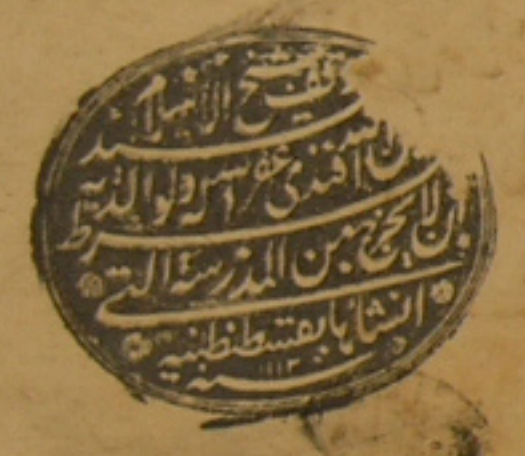 وقف شيخ الاسلام
السيد الله افندى غفر الله له ولوالديه
بشرط ان لا يخرج من المدرسة التي
انشأها بقسطنطينية
سنه ١١١٣